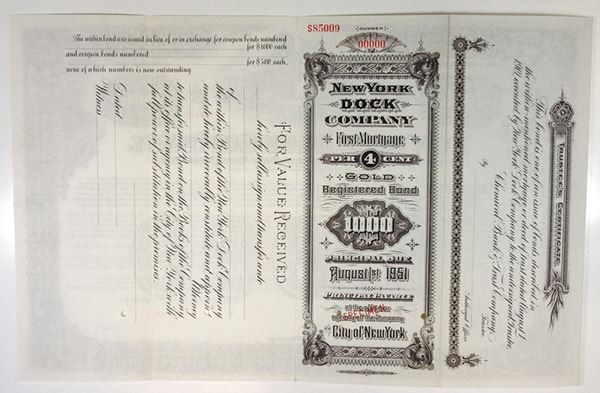 The within bond was issued in lieu of or in exchange for coupon bonds numbered
for $1000 each
and coupon bonds numbered
for $500 each,
none of which numbers is now outstanding.
FOR VALUE RECEIVED
hereby sell, assign and transfer unto
of
the within Bond of the New York Dock Company
and do hereby irrevocably constitute and appoint
Attorney
to transfer said Bond on the Books of the Company
at its office or agency in the City of New York, with
full power of substitution in the premises.
Dated
Witness
$85009
NUMBER
00000
NEW YORK
DOCK
COMPANY
First Mortgage
PER 4 CENT
GOLD
Registered Bond
1000
PRINCIPAL DUE
August 1st 1951
PRINCIPAL PAYABLE
at the office or
agency of the Company
SPECIMEN
City of New York
TRUSTEE'S CERTIFICATE
This bond is one of an issue of bonds described in
the within mentioned mortgage or deed of trust dated August 1
1901, executed by New York Dock Company to the undersigned Trustee.
Chemical Bank & Trust Company,
Trustee
By
Authorized Officer